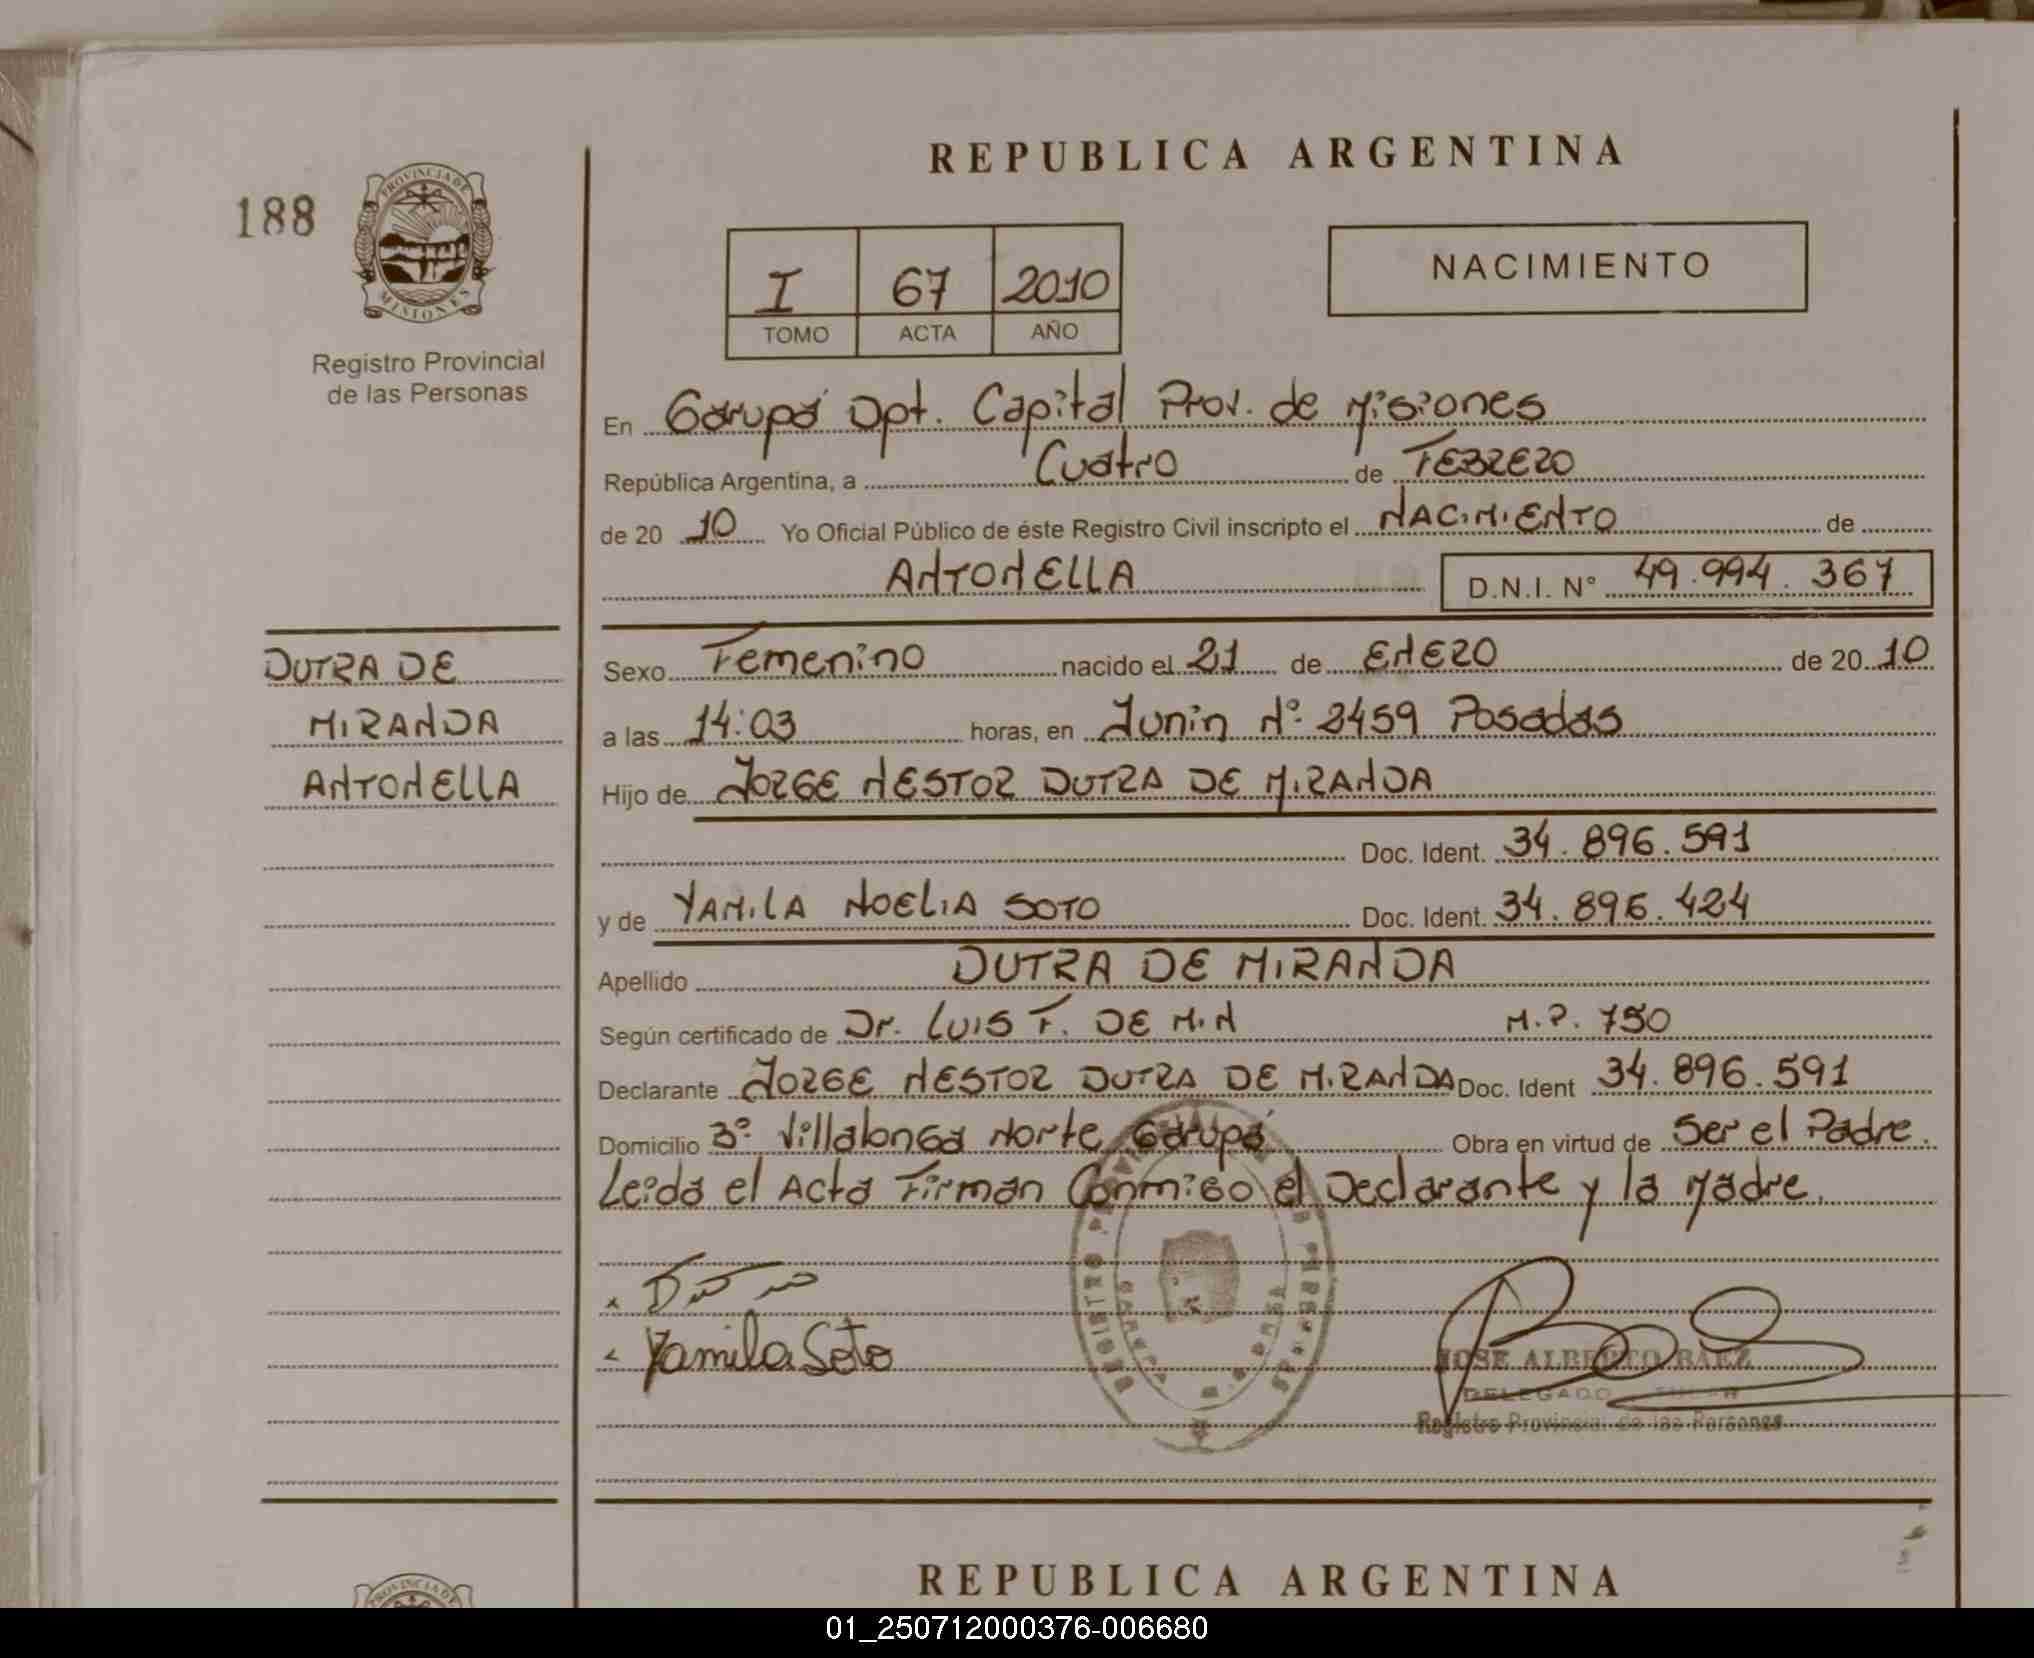 REPUBLICA ARGENTINA
188
PROVINCIA DE
MISIONES
Registro Provincial
de las Personas
I 67 2010
TOMO ACTA AÑO
NACIMIENTO
En Garupá Dpt. Capital Prov. de Misiones
República Argentina, a Cuatro de FEBRERO
de 20 10 Yo Oficial Público de éste Registro Civil inscripto el NACIMIENTO de
ANTONELLA D.N.I. N° 49.994.367
DUTRA DE
MIRANDA
ANTONELLA
Sexo Femenino nacido el 21 de ENERO de 20 10
a las 14:03 horas, en Junin N° 2459 Posadas
Hijo de JORGE NESTOR DUTRA DE MIRANDA
Doc. Ident. 34.896.591
y de YAMILA NOELIA SOTO Doc. Ident. 34.896.424
Apellido DUTRA DE MIRANDA
Según certificado de Dr. LUIS F. DE MIN M.P. 750
Declarante JORGE NESTOR DUTRA DE MIRANDA Doc. Ident 34.896.591
Domicilio 3° Villalonga Norte Garupá Obra en virtud de Ser el Padre.
Leida el Acta Firman Conmigo el Declarante y la Madre.
Yamila Soto
JOSE ALBERTO BAEZ
DELEGADO
Registro Provincial de las Personas
REPUBLICA ARGENTINA
PROVINCIA DE
01_250712000376-006680